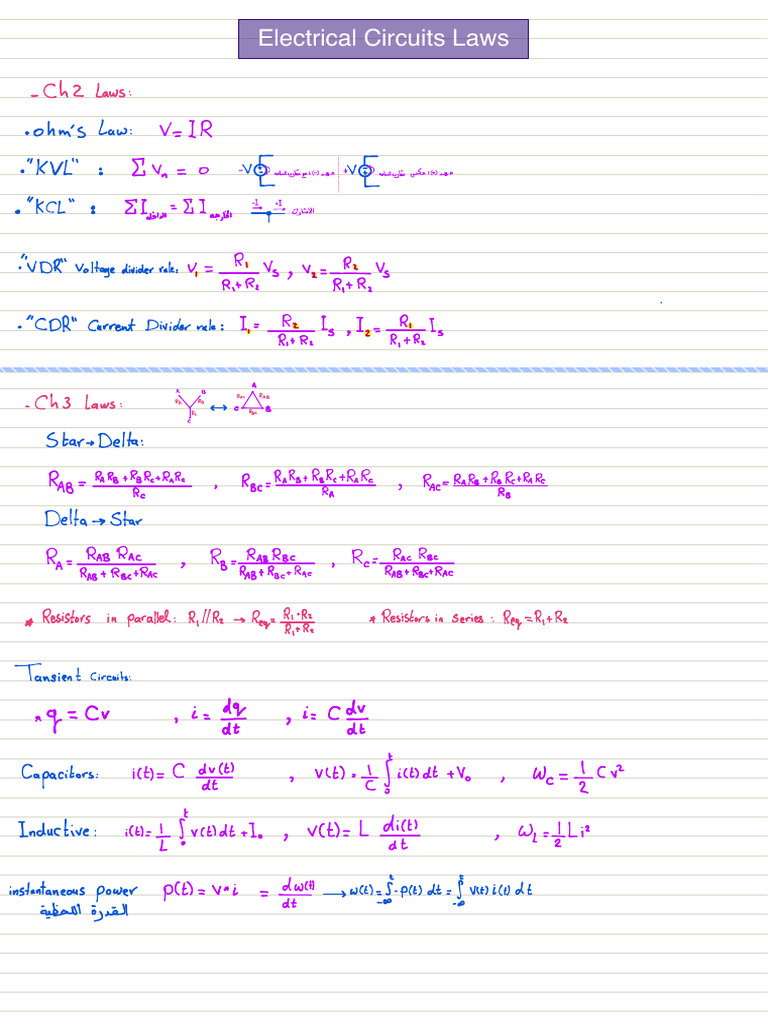 Electrical Circuits Laws
- Ch2 Laws:
• ohm's Law: V = I R
• "KVL" : Σ Vn = 0 -V +V
• "KCL" : Σ I الداخلة = Σ I الخارجة -I +I
• "VDR" Voltage divider rule: V1 = R1 / (R1 + R2) Vs , V2 = R2 / (R1 + R2) Vs
• "CDR" Current Divider rule: I1 = R2 / (R1 + R2) Is , I2 = R1 / (R1 + R2) Is
- Ch3 Laws: A B RA RB RC C ↔ A RAC RAB C RBC B
Star → Delta:
RAB = (RA RB + RB RC + RA RC) / RC , RBC = (RA RB + RB RC + RA RC) / RA , RAC = (RA RB + RB RC + RA RC) / RB
Delta → Star
RA = RAB RAC / (RAB + RBC + RAC) , RB = RAB RBC / (RAB + RBC + RAC) , RC = RAC RBC / (RAB + RBC + RAC)
* Resistors in parallel: R1 // R2 → Req = R1 · R2 / (R1 + R2) * Resistors in series : Req = R1 + R2
Tansient Circuits:
* q = Cv , i = dq/dt , i = C dv/dt
Capacitors: i(t) = C dv(t)/dt , v(t) = 1/C ∫₀ᵗ i(t) dt + V₀ , WC = 1/2 C v²
Inductive: i(t) = 1/L ∫₀ᵗ v(t) dt + I₀ , V(t) = L di(t)/dt , WL = 1/2 L i²
instantaneous power P(t) = v * i = dw(t)/dt → w(t) = ∫₋∞ᵗ p(t) dt = ∫₋∞ᵗ v(t) i(t) dt
القدرة اللحظية